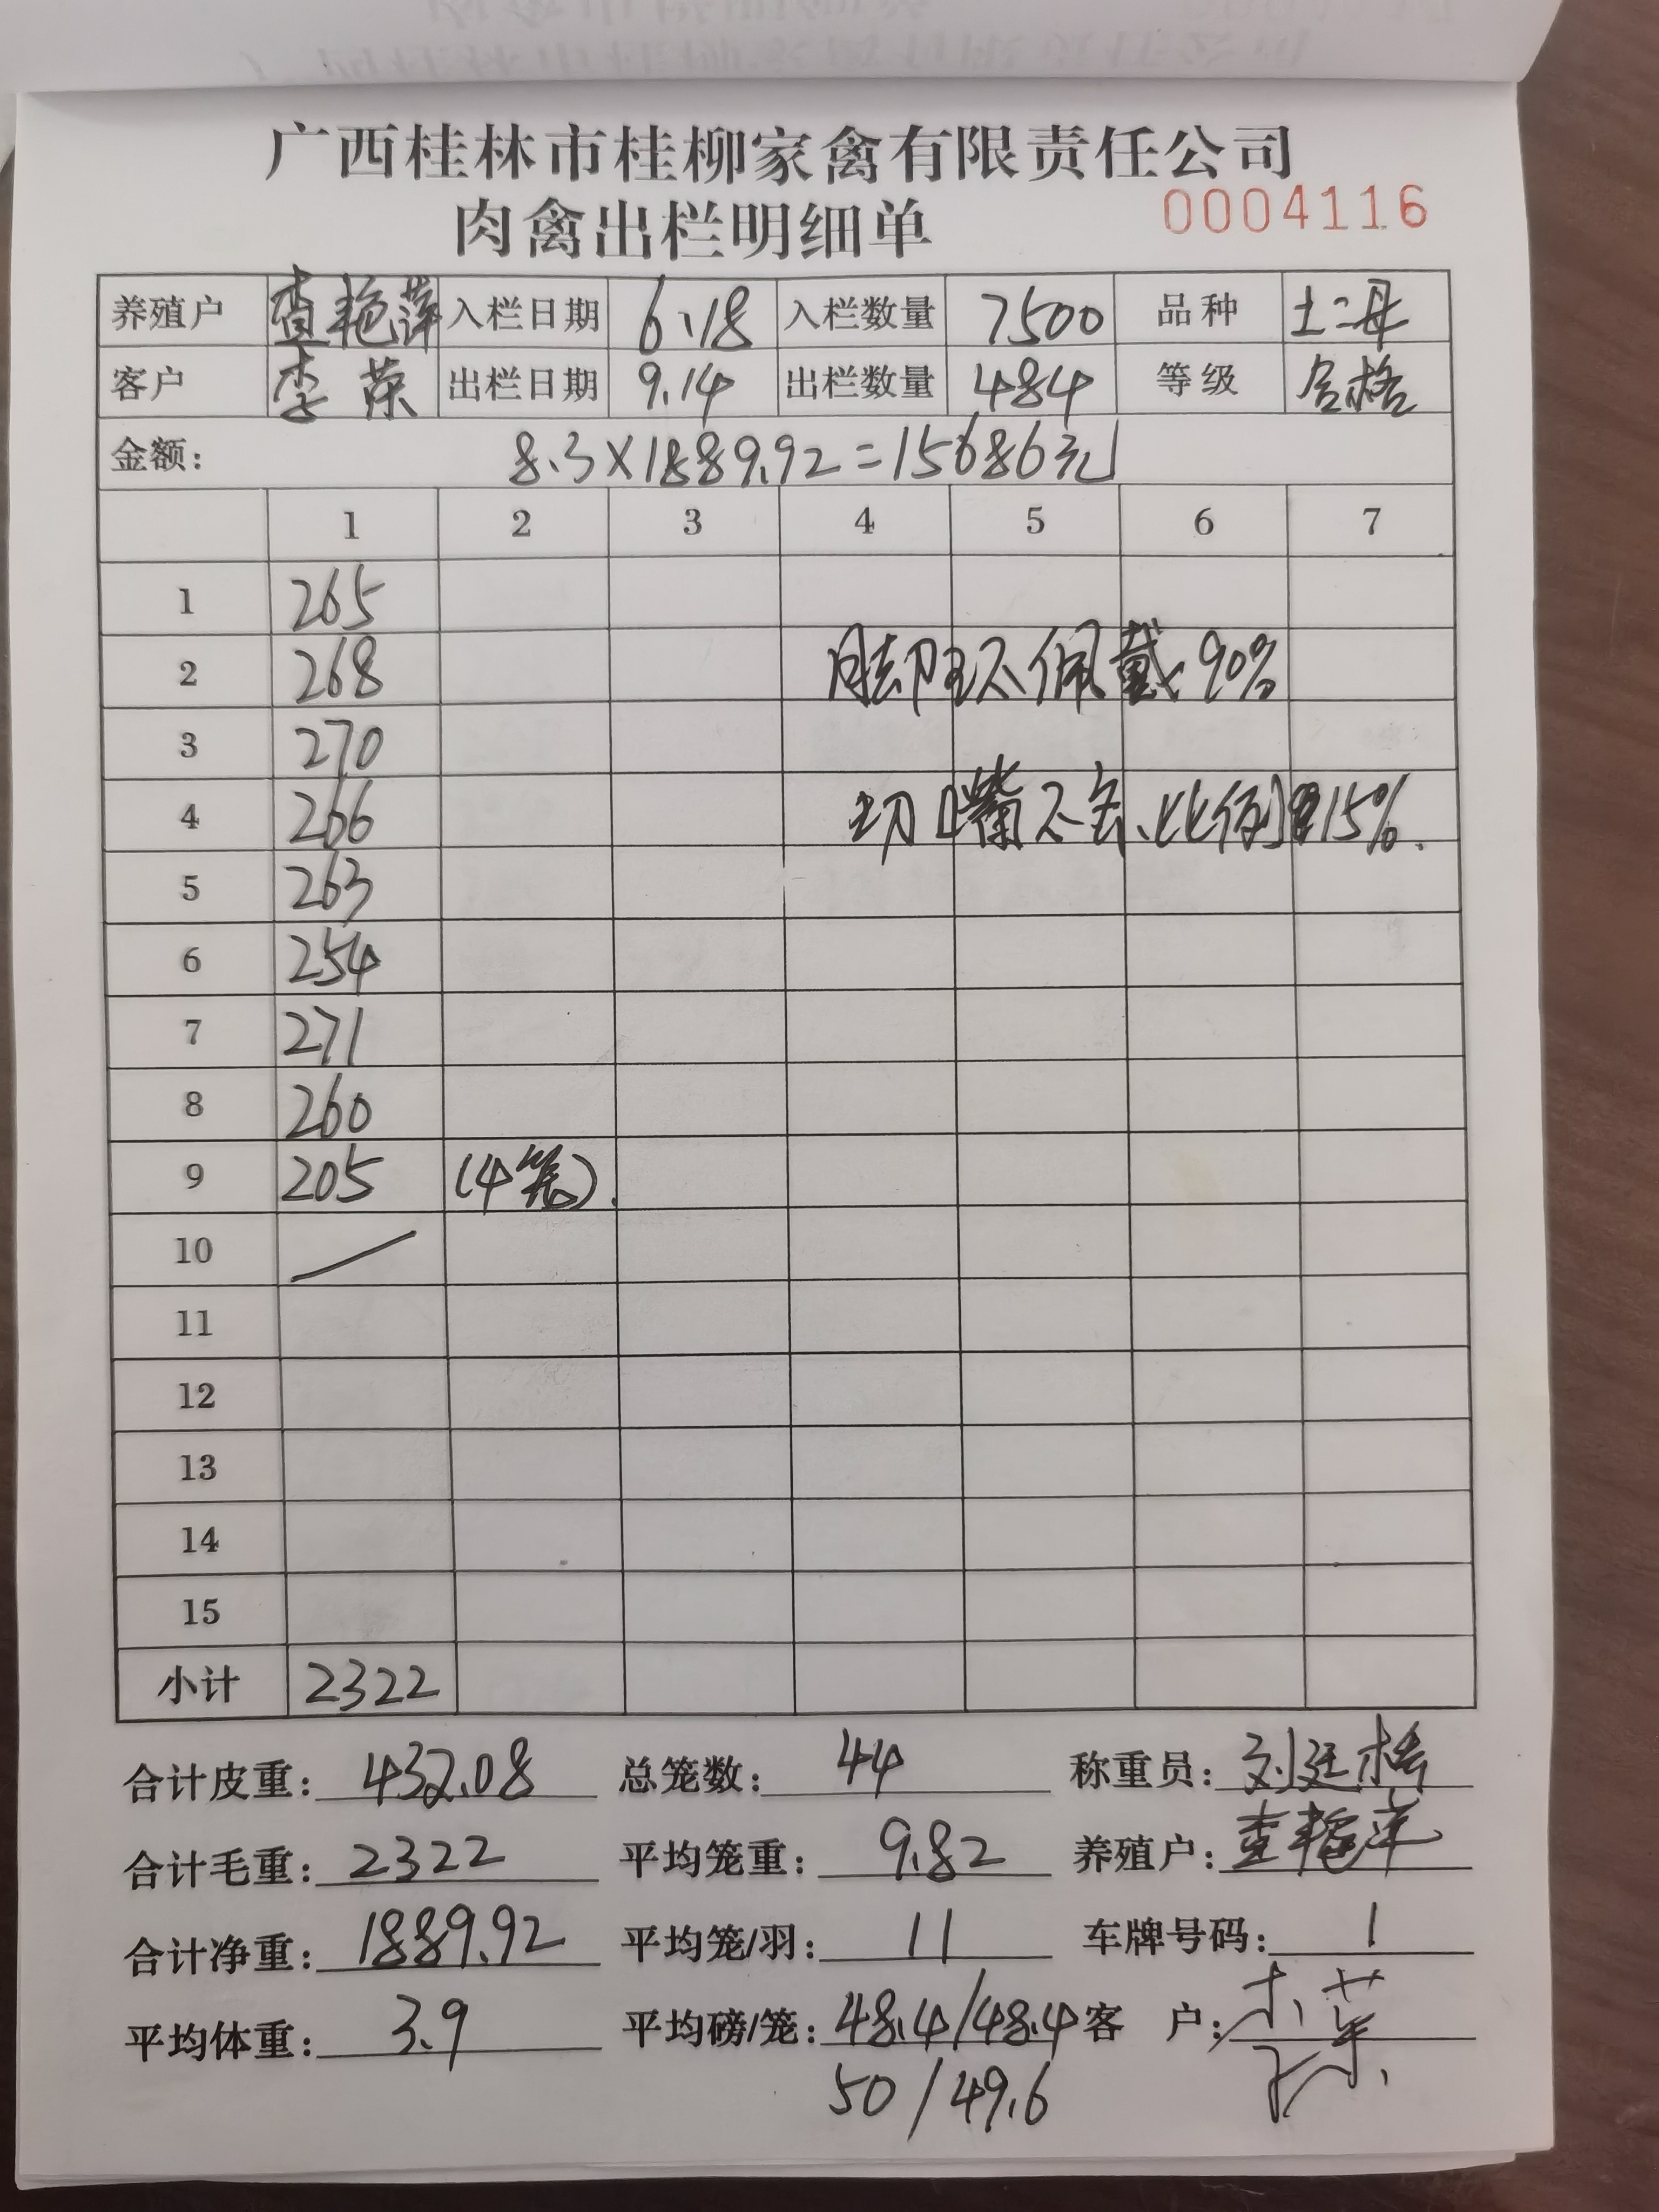 广西桂林市桂柳家禽有限责任公司
肉禽出栏明细单 0004116
养殖户 查艳萍 入栏日期 6.18 入栏数量 7500 品种 土二母
客户 李荣 出栏日期 9.14 出栏数量 484 等级 合格
金额: 8.3×1889.92=15686元
1 2 3 4 5 6 7
1 265
2 268 脚环不佩戴90%
3 270
4 266 切嘴不全、比例15%.
5 263
6 254
7 271
8 260
9 205 (4笼).
10
11
12
13
14
15
小计 2322
合计皮重: 432.08 总笼数: 44 称重员: 刘廷
合计毛重: 2322 平均笼重: 9.82 养殖户: 查艳萍
合计净重: 1889.92 平均笼/羽: 11 车牌号码: 1
平均体重: 3.9 平均磅/笼: 48.4/48.4 客 户: 李荣
50/49.6